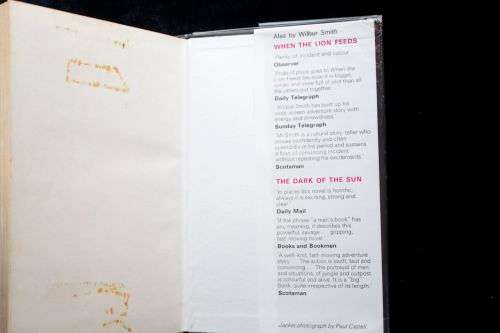 Also by Wilbur Smith
WHEN THE LION FEEDS
'Plenty of incident and colour
Observer
'Pride of place goes to When the
Lion Feeds because it is bigger,
and more full of plot than all
the others put together.
Daily Telegraph
'Wilbur Smith has built up his
wide-screen adventure story with
energy and shrewdness.
Sunday Telegraph
'Mr Smith is a natural story-teller who
moves confidently and often
splendidly in his period and sustains
a flow of convincing incident
without repeating his excitements.
Scotsman
THE DARK OF THE SUN
'In places this novel is horrific,
almost it is exciting, strong and
clear
Daily Mail
'If the phrase "a man's book" has
any meaning, it describes this
powerful, savage gripping,
fast-moving novel
Books and Bookmen
'A well-knit, fast-moving adventure
story The action is swift, taut and
convincing The portrayal of men
and situations, of jungle and outpost
is colourful and alive. It is a "big"
book, quite irrespective of its length.
Scotsman
Jacket photograph by Paul Castell